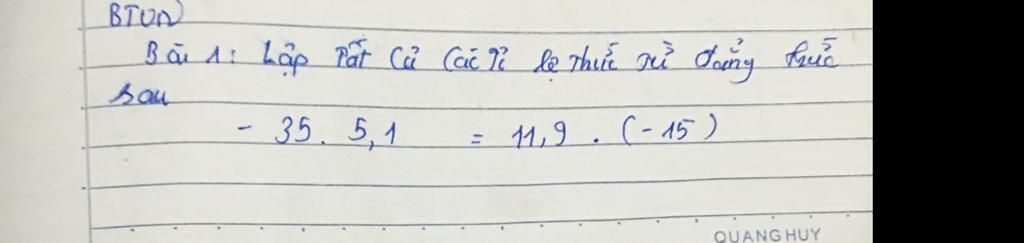 BTVN
Bài 1: Lập tất cả các tỉ lệ thức từ đẳng thức
sau
- 35. 5,1 = 11,9 . (-15)
QUANG HUY